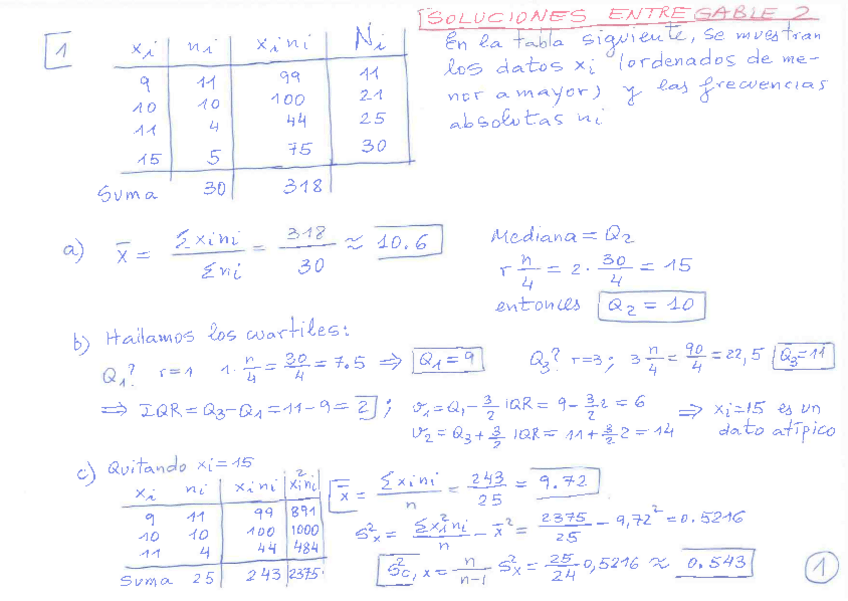 SOLUCIONES ENTREGABLE 2
1
xi ni xini Ni
9 11 99 11
10 10 100 21
11 4 44 25
15 5 75 30
Suma 30 318
En la tabla siguiente, se muestran
los datos xi (ordenados de me-
nor a mayor) y las frecuencias
absolutas ni
a) x̄ = Σxini/Σni = 318/30 ≈ 10.6
Mediana = Q2
r n/4 = 2· 30/4 = 15
entonces Q2 = 10
b) Hallamos los cuartiles:
Q1? r=1 1· n/4 = 30/4 = 7.5 ⇒ Q1 = 9 Q3? r=3; 3 n/4 = 90/4 = 22,5 Q3=11
⇒ IQR = Q3-Q1 = 11-9 = 2; v1 = Q1 - 3/2 IQR = 9 - 3/2 2 = 6 ⇒ xi=15 es un
v2 = Q3 + 3/2 IQR = 11 + 3/2 2 = 14 dato atípico
c) Quitando xi=15
xi ni xini xi²ni
9 11 99 891
10 10 100 1000
11 4 44 484
Suma 25 243 2375
x̄ = Σxini/n = 243/25 = 9.72
S²x = Σxi²ni/n - x̄² = 2375/25 - 9,72² = 0.5216
S²c,x = n/n-1 S²x = 25/24 0,5216 ≈ 0.543
1